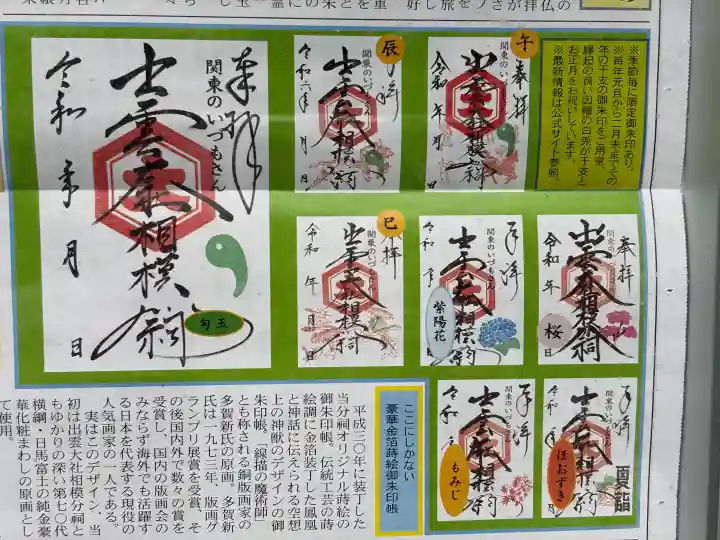 ※季節毎に限定御朱印あり。
※毎年元旦から二月末までその
年の干支の御朱印をご用意。
縁起の良い因幡の白兎が干支と
お正月をお祝いしています。
※最新情報は公式サイト参照。
午
奉拝
出雲大社相模分祠
令和 年 月 日
辰
奉拝
関東のいづもさん
出雲大社相模分祠
令和六年 月 日
奉拝
関東のいづもさん
出雲大社相模分祠
令和 年 月 日
勾玉
奉拝
関東の
出雲大社相模分祠
令和 年 日
桜
奉拝
関東のいづもさん
出雲大社相模分祠
令和
紫陽花
巳
奉拝
関東のいづもさん
出雲大社相模分祠
令和 年 月 日
奉拝
夏詣
出雲大社相模分祠
令和
ほおずき
奉拝
関東のいづもさん
出雲大社相模分祠
令和
もみじ
ここにしかない
豪華金箔蒔絵御朱印帳
平成三〇年に装丁した
当分祠オリジナル蒔絵の
御朱印帳。伝統工芸の蒔
絵調に金箔装丁した鳳凰
と神話に伝えられる空想
上の神獣のデザインの御
朱印帳。「線描の魔術師」
とも称される銅版画家の
多賀新氏の原画。多賀新
氏は一九七三年、版画グ
ランプリ展賞を受賞、そ
の後国内外で数々の賞を
受賞し、国内の版画会の
みならず海外でも活躍す
る日本を代表する現役の
人気画家の一人である。
実はこのデザイン、当
初は出雲大社相模分祠と
もゆかりの深い第七〇代
横綱・日馬富士の純金豪
華化粧まわしの原画とし
て使用。